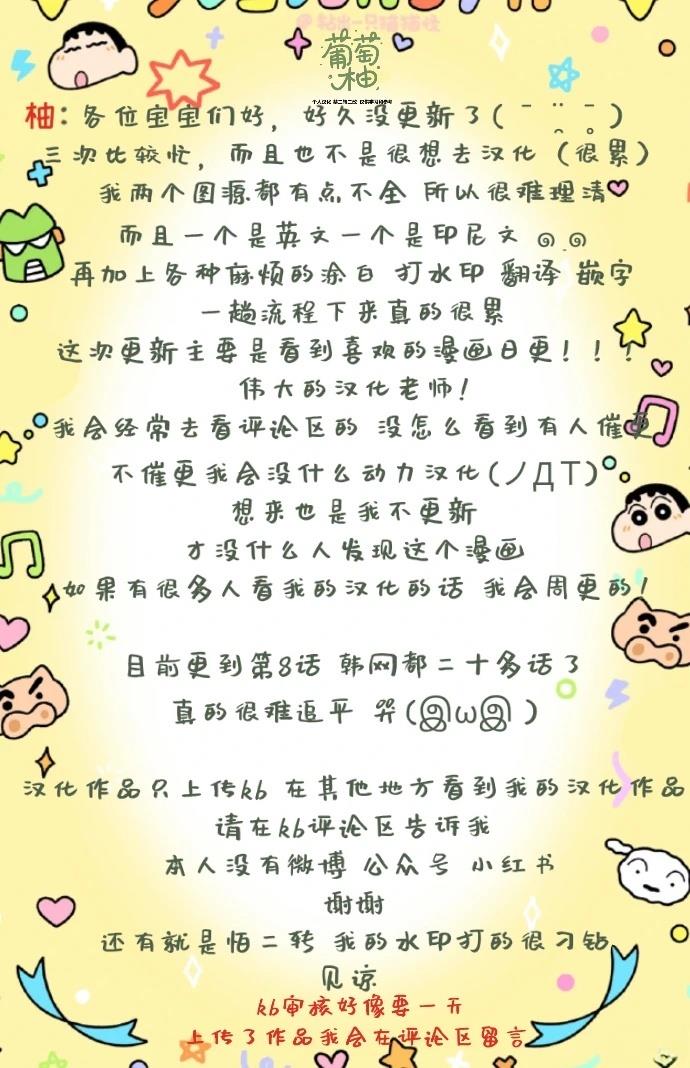 @钻出一只猫猫怪
葡萄
柚
柚：各位宝宝们好，好久没更新了( ¯ ¨̯ ¯̥ )
三次比较忙，而且也不是很想去汉化（很累）
我两个图源都有点不全 所以很难理清
而且一个是英文一个是印尼文 ๑ . ๑
再加上各种麻烦的涂白 打水印 翻译 嵌字
一趟流程下来真的很累
这次更新主要是看到喜欢的漫画日更！！！
伟大的汉化老师！
我会经常去看评论区的 没怎么看到有人催更
不催更我会没什么动力汉化(ノДT)
想来也是我不更新
才没什么人发现这个漫画
如果有很多人看我的汉化的话 我会周更的！
目前更到第8话 韩网都二十多话了
真的很难追平 哭(இωஇ )
汉化作品只上传kb 在其他地方看到我的汉化作品
请在kb评论区告诉我
本人没有微博 公众号 小红书
谢谢
还有就是恓二转 我的水印打的很刁钻
见谅
kb审核好像要一天
上传了作品我会在评论区留言